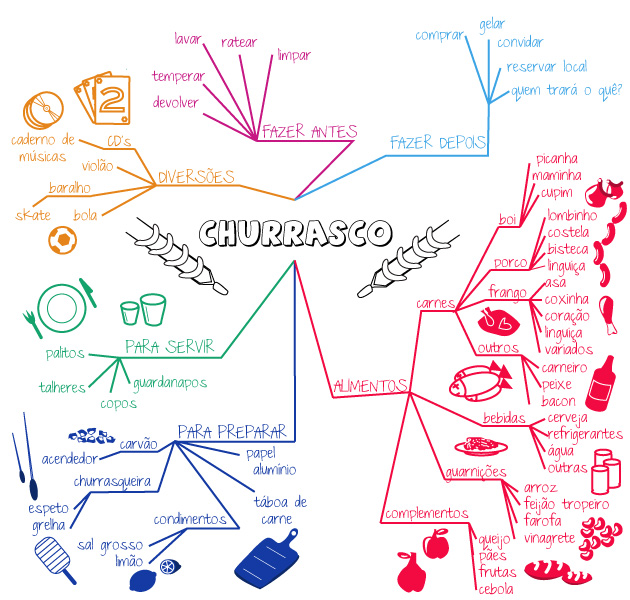 lavar
ratear
limpar
temperar
devolver
FAZER ANTES
comprar
gelar
convidar
reservar local
quem trará o quê?
FAZER DEPOIS
2
caderno de
músicas
CD's
violão
baralho
skate
bola
DIVERSÕES
CHURRASCO
PARA SERVIR
palitos
talheres
copos
guardanapos
PARA PREPARAR
carvão
acendedor
churrasqueira
espeto
grelha
condimentos
sal grosso
limão
papel
alumínio
táboa de
carne
ALIMENTOS
carnes
boi
picanha
maminha
cupim
porco
lombinho
costela
bisteca
linguiça
frango
asa
coxinha
coração
linguiça
variados
outros
carneiro
peixe
bacon
bebidas
cerveja
refrigerantes
água
outras
guarnições
arroz
feijão tropeiro
farofa
vinagrete
complementos
queijo
pães
frutas
cebola